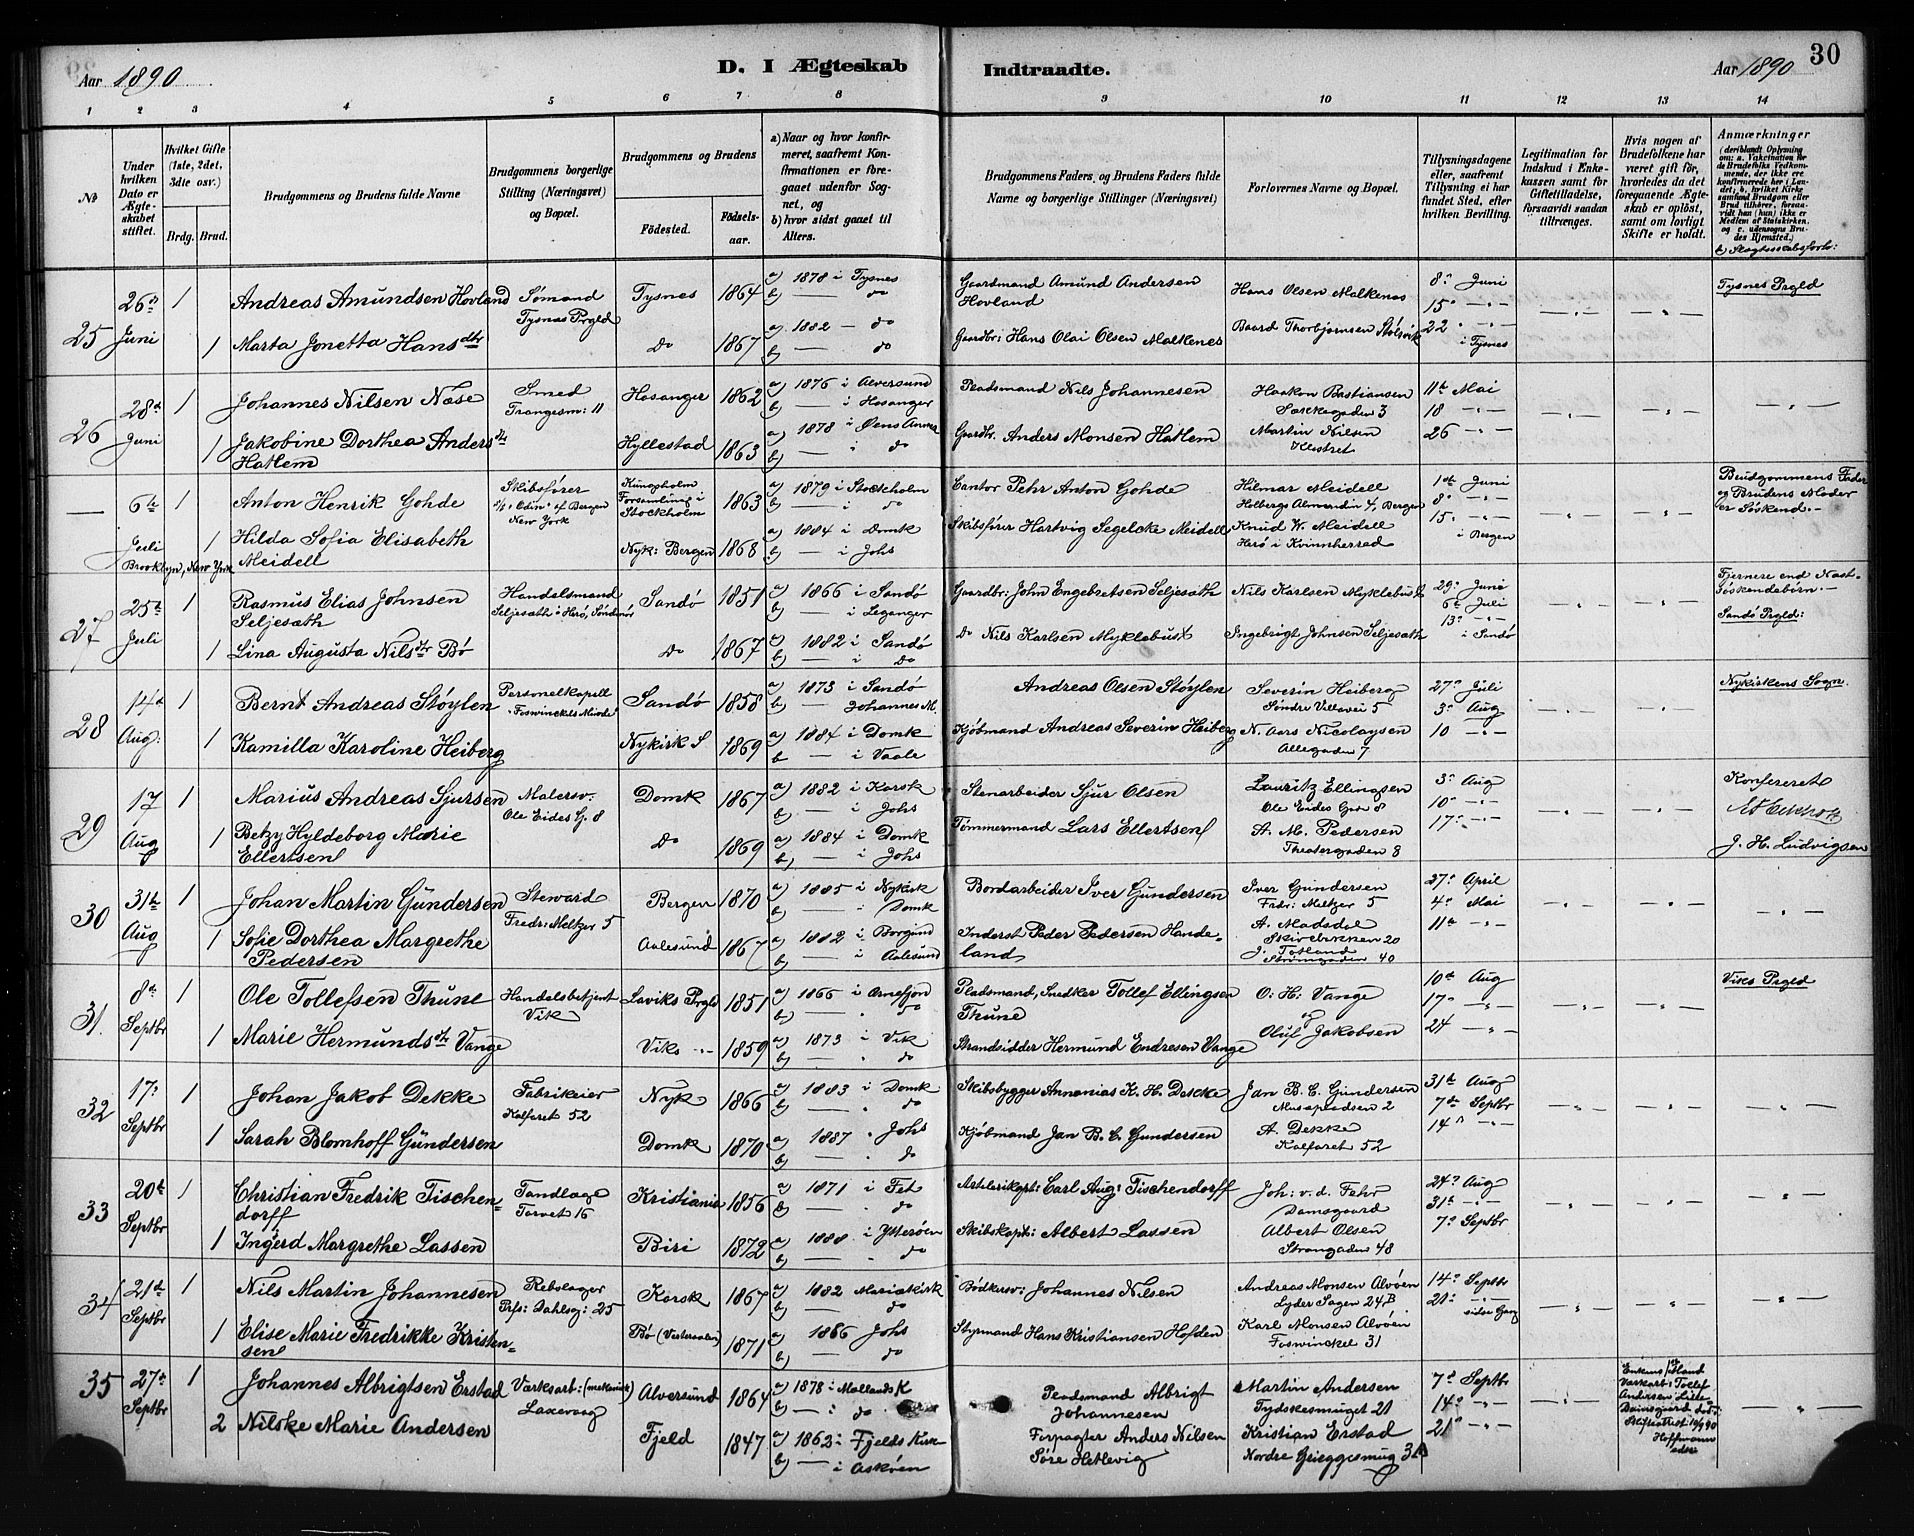 Aar 1890
D. I Ægteskab Indtraadte.
Aar 1890
30
1 2 3 4 5 6 7 8 9 10 11 12 13 14
No
Under hvilken Dato er Ægteskabet stiftet.
Hvilket Gifte (1ste, 2det, 3die osv.)
Brdg. Brud.
Brudgommens og Brudens fulde Navne
Brudgommens borgerlige Stilling (Næringsvei) og Bopæl.
Brudgommens og Brudens
Fødested.
Fødselsaar.
a) Naar og hvor konfirmeret, saafremt Konfirmationen er foregaaet udenfor Sognet, og
b) hvor sidst gaaet til Alters.
Brudgommens Faders, og Brudens Faders fulde Navne og borgerlige Stillinger (Næringsvei)
Forlovernes Navne og Bopæl.
Tillysningsdagene eller, saafremt Tillysning ei har fundet Sted, efter hvilken Bevilling.
Legitimation for Indskud i Enkekassen samt for Giftetilladelse, forsaavidt saadan tiltrænges.
Hvis nogen af Brudefolkene har været gift før, hvorledes da det foregaaende Ægteskab er opløst, samt om lovligt Skifte er holdt.
Anmærkninger
(deriblandt Oplysning om: a. Vakcination for de Brudefolks Vedkommende, der ikke ere konfirmerede her i Landet; b. hvilket Kirkesamfund Brudgom eller Brud tilhører, forsaavidt han (hun) ikke er Medlem af Statskirken, og c. udensogns Brudes Hjemsted.)
25 26de Juni 1 Andreas Amundsen Hovland Sømand Tysnes Prgld Tysnes 1864 a) 1878 i Tysnes b) — do Gaardmand Amund Andersen Hovland Hans Olsen Malkenes 8 Juni 15 —"—
1 Marta Jonetta Hansdtr Do 1867 a) 1882 — do b) do Gaardbr: Hans Olai Olsen Malkenes Baard Thorbjørnsen Stølsvik 22 i Tysnes
Tysnes Prgld
26 28de Juni 1 Johannes Nilsen Næse Smed Trangesm: 11 Hosanger 1862 a) 1876 i Alversund b) — i Hosanger Pladsmand Nils Johannesen Haakon Bastiansen 11te Mai 18 —"—
1 Jakobine Dorthea Andersdtr Hatlem Hyllestad 1863 a) 1878 i b) do Gaardbr. Anders Monsen Hatlem Martin Nilsen Klostret 26 —"—
— 6te Juli 1 Anton Henrik Gohde Skibsfører "Odin" af Bergen New York Kungsholm Forsamling i Stockholm 1863 a) 1879 i Stockholm b) — i do Cantor Pehr Anton Gohde Hilmar Meidell Holbergs Almending 4, Bergen 1ste Juni 8 —"—
1 Hilda Sofia Elisabeth Meidell Nyk: Bergen 1868 a) 1884 i Domk b) — i Johs Skibsfører Hartvig Segelcke Meidell Knud W. Meidell Herø i Kvinnherred 15 —"— i Bergen
Brooklyn, New York
Brudgommens Fader og Brudens Moder er Søskend.
27 25de Juli 1 Rasmus Elias Johnsen Seljesæth Handelsmand Seljesæth i Herø, Søndmør Sandø 1851 a) 1866 i Sandø b) — i Leganger Gaardbr: John Engebretsen Seljesæth Nils Karlsen Myklebust 29 Juni 6te Juli
1 Lina Augusta Nilsdtr Bø Do 1867 a) 1882 i Sandø b) — i Do Do Nils Karlsen Myklebust Ingebrigt Johnsen Seljesæth 13 —"— i Sandø
Fjernere end Næstsøskendebørn.—
Sandø Prgld:
28 14de Aug: 1 Bernt Andreas Støylen Personelkapell Foswinckels Minde Sandø 1858 a) 1873 i Sandø b) — Johannes M. Andreas Olsen Støylen Severin Heiberg Søndre Villavei 5 27 Juli 3 Aug
1 Kamilla Karoline Heiberg Nykirk S 1869 a) 1884 i Domk b — i Vaale Kjøbmand Andreas Severin Heiberg N. Aars Nicolaysen Allegaden 7 10 —"—
Nykirkens Sogn.
29 17 Aug 1 Marius Andreas Sjursen Malersv. Ole Eides G. 8 Domk 1867 a) 1882 i Korsk b) — i Johs Stenarbeider Sjur Olsen Lauritz Ellingsen Ole Eides Gd 8 3 Aug 10 —"—
1 Betzy Hyldeborg Marie Ellertsen Do 1869 a) 1884 i Domk b) — i Johs Tømmermand Lars Ellertsen A. M. Pedersen Theatergaden 8 17 —"—
Konfereret
J. H. Ludvigsen
30 31te Aug 1 Johan Martin Gundersen Steward Fredr: Meltzer 5 Bergen 1870 a) 1885 i Nykirk b) — Domk Bordarbeider Iver Gundersen Iver Gundersen Fredr: Meltzer 5 27 April 4 Mai
1 Sofie Dorthea Margrethe Pedersen Aalesund 1867 a) 1882 i Borgund b) — i Aalesund Inderst Peder Pedersen Handeland A. Madsdal Skivebakken 20 J. Totland Strømgaden 40 11te —"—
31. 8de Septbr 1 Ole Tollefsen Thune Handelsbetjent Vik Laviks Prgld 1851 a) 1866 i Arnefjord b) — do Pladsmand, Snedker Tollef Ellingsen Thune O: H: Vange og 10de Aug 17 —"—
1 Marie Hermundsdtr Vange Viks —"— 1859 a) 1873 i Vik b) — do Strandsidder Hermund Endresen Vange Oluf Jakobsen 24 —"—
Viks Prgld
32 17 Septbr 1 Johan Jakob Dekke Fabrikeier Kalfaret 52 Nyk 1866 a) 1883 i Domk b) — do Skibsbygger Annanias K. H. Dekke Jan B. C. Gundersen Musepladsen 2 31te Aug 7de Septbr
1 Sarah Blomhoff Gundersen Domk 1870 a) 1887 Johs b) — do Kjøbmand Jan B. C. Gundersen A. Dekke Kalfaret 52 14 —"—
33 20de Septbr 1 Christian Fredrik Tischendorff Tandlæge Torvet 16 Kristiania 1856 a) 1871 i Fet b) — do Artillerikapt: Carl Aug: Tischendorff Joh: v. d. Fehr Damsgaard 24 Aug 31te —"—
1 Ingerd Margrethe Lassen Biri 1872 a) 1888 i Ytterøen b) do Skibskapt: Albert Lassen Albert Olsen Strangaden 48 7 Septbr
34 21de Septbr 1 Nils Martin Johannesen Rebslager Prfs: Dahlsg: 25 Korsk 1867 a) 1882 Mariækirk b) — do Bødkersv: Johannes Nilsen Andreas Monsen Alvøen Lyder Sagen 24B 14 Septbr 21 —"— sidse Gang
1 Elise Marie Fredrikke Kristensen Bø (Vesteraalen) 1871 a) 1886 Johs b) — do Styrmand Hans Kristiansen Hofden Karl Monsen Alvøen Foswinckel 31
35 27de Septbr 1 Johannes Albrigtsen Erstad Værksarb: (mekanisk) Laxevaag Alversund 1864 a) 1878 i b) — i do Pladsmand Albrigt Johannesen Martin Andersen Tydskesmuget 21 7de Septbr 14 —"—
2 Nilske Marie Andersen Fjeld 1847 a) 1862 i Fjelds Kirk b) — i Askøen Forpagter Anders Nilsen Søre Hetlevig Kristian Erstad Nordre Grieggesmug 3A 21 —"—